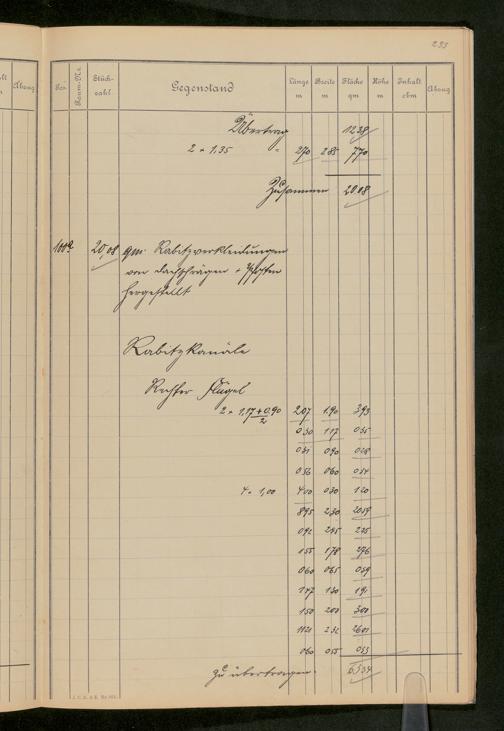 233
Pos. Raum-Nr. Stückzahl Gegenstand Länge m Breite m Fläche qm Höhe m Inhalt cbm Abzug
Übertrag 1238
2 × 1,35 = 270 285 770
Zusammen 2008
20,08 qm Rabitzverkleidungen
von Dachschrägen +
hergestellt
Rabitzkanäle
Rechter Flügel
2 × 1,17+0,90/2 207 190 393
030 117 035
031 090 028
056 060 034
4 × 1,00 400 030 120
895 230 2059
092 245 225
155 178 276
060 065 039
147 130 191
150 200 300
1121 232 2601
060 055 033
zu übertragen 6334